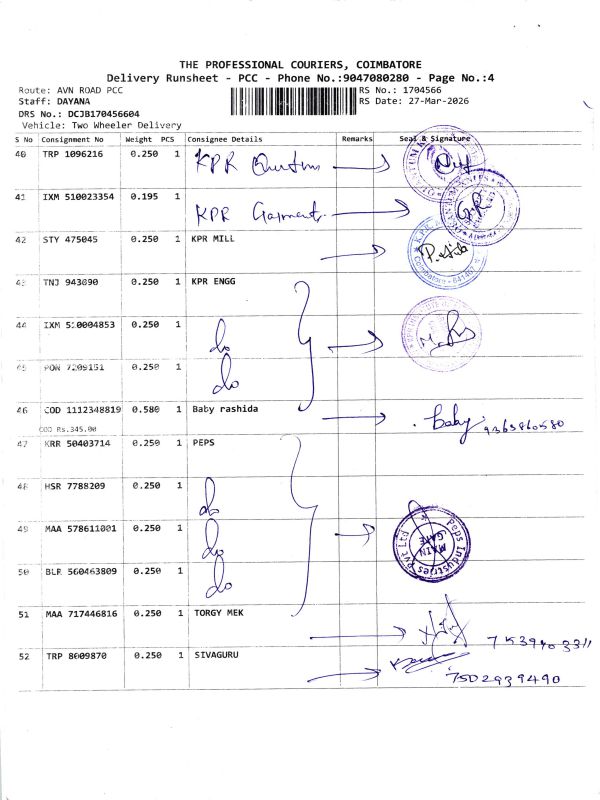 THE PROFESSIONAL COURIERS, COIMBATORE
Delivery Runsheet - PCC - Phone No.:9047080280 - Page No.:4
Route: AVN ROAD PCC
RS No.: 1704566
Staff: DAYANA
RS Date: 27-Mar-2026
DRS No.: DCJB170456604
Vehicle: Two Wheeler Delivery
S No Consignment No Weight PCS Consignee Details Remarks Seal & Signature
40 TRP 1096216 0.250 1 KPR
41 IXM 510023354 0.195 1 KPR Garments
42 STY 475045 0.250 1 KPR MILL
Coimbatore - 641407
43 TNJ 943090 0.250 1 KPR ENGG
44 IXM 510004853 0.250 1 do
45 PON 7209151 0.250 1 do
46 COD 1112348819 0.580 1 Baby rashida baby
COD Rs.345.00
47 KRR 50403714 0.250 1 PEPS
48 HSR 7788209 0.250 1 do
49 MAA 578611001 0.250 1 do
Peps Industries Pvt Ltd
MAIN GATE
50 BLR 560463809 0.250 1 do
51 MAA 717446816 0.250 1 TORGY MEK
52 TRP 8009870 0.250 1 SIVAGURU
7502939490